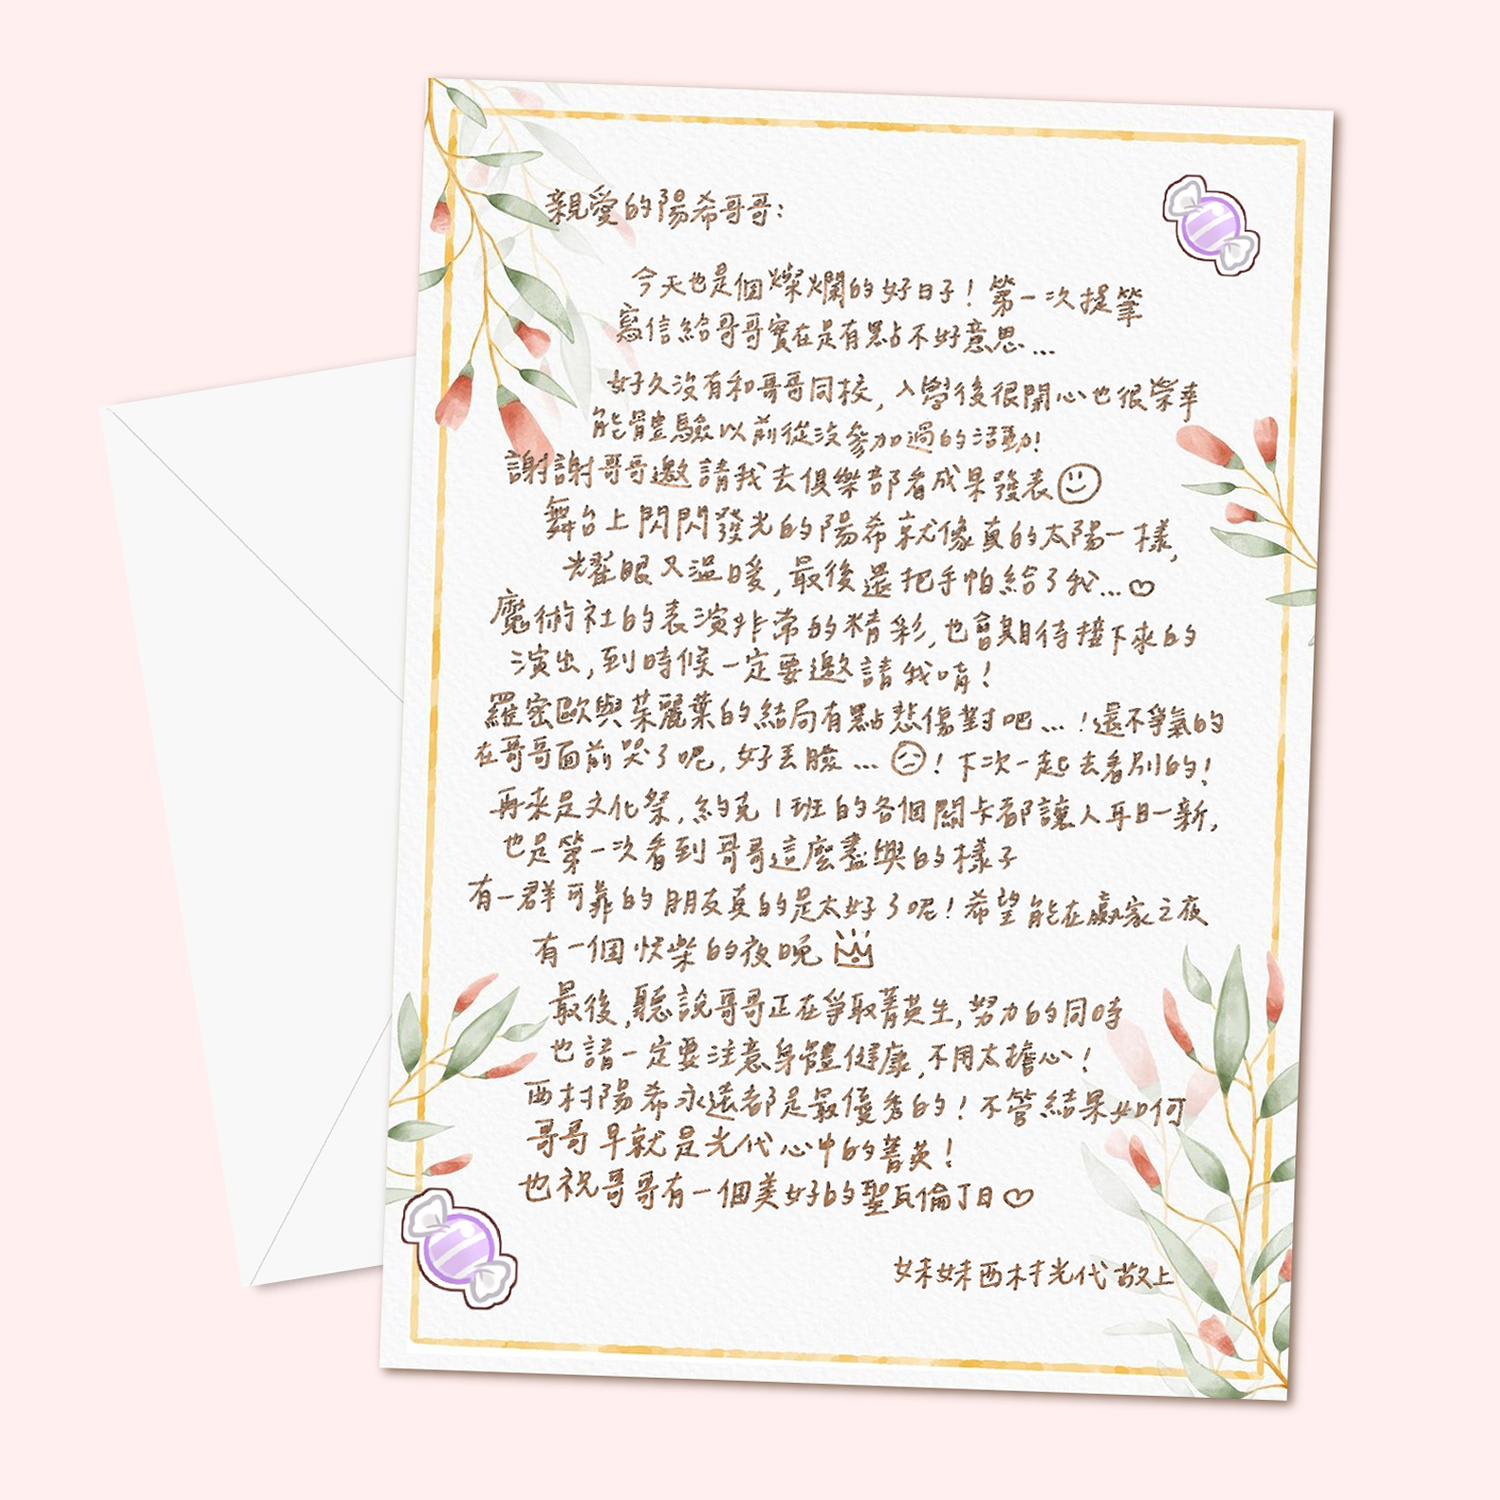 親愛的陽希哥哥:
今天也是個燦爛的好日子！第一次提筆
寫信給哥哥實在是有點不好意思...
好久沒有和哥哥同校,入學後很開心也很榮幸
能體驗以前從沒參加過的活動!
謝謝哥哥邀請我去俱樂部看成果發表
舞台上閃閃發光的陽希就像真的太陽一樣,
耀眼又溫暖,最後還把手帕給了我...♡
魔術社的表演非常的精彩,也會期待接下來的
演出,到時候一定要邀請我唷!
羅密歐與茱麗葉的結局有點悲傷對吧...!還不爭氣的
在哥哥面前哭了呢,好丟臉...!下次一起去看別的!
再來是文化祭,約克1班的各個關卡都讓人耳目一新,
也是第一次看到哥哥這麼盡興的樣子
有一群可靠的朋友真的是太好了呢!希望能在贏家之夜
有一個快樂的夜晚
最後,聽說哥哥正在爭取菁英生,努力的同時
也請一定要注意身體健康,不用太擔心!
西村陽希永遠都是最優秀的!不管結果如何
哥哥早就是光代心中的菁英!
也祝哥哥有一個美好的聖瓦倫丁日♡
妹妹西村光代敬上